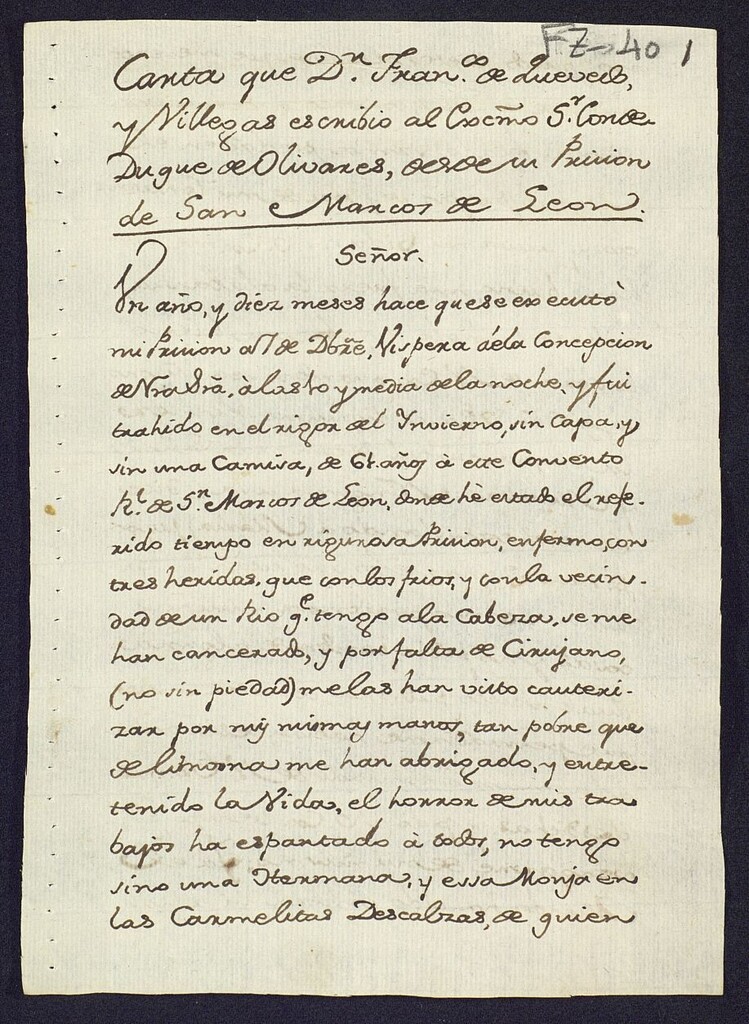 FZ-40 1
Carta que Dn. Fran.co de Quevedo,
y Villegas escribio al Excmo Sr. Conde
Duque de Olivares, desde su Prision
de San Marcos de Leon.
Señor.
Un año, y diez meses hace que se executò
mi Prision a 7 de Dbre, Vispera dela Concepcion
de Nra Sra, à las 10 y media de la noche, y fui
trahido en el rigor del Ynvierno, sin Capa, y
sin una Camisa, de 61 años à este Convento
Rl. de Sn. Marcos de Leon, donde hè estado el refe-
rido tiempo en rigurosa Prision, enfermo, con
tres heridas, que con los frios, y con la vecin-
dad de un Rio qe. tengo a la Cabeza, se me
han cancerado, y por falta de Cirujano,
(no sin piedad) me las han visto cauteri-
zar por mis mismas manos, tan pobre que
de limosna me han abrigado, y entre-
tenido la Vida, el horror de mis tra
bajos ha espantado à todos, no tengo
sino una Hermana, y essa Monja en
las Carmelitas Descalzas, de quien